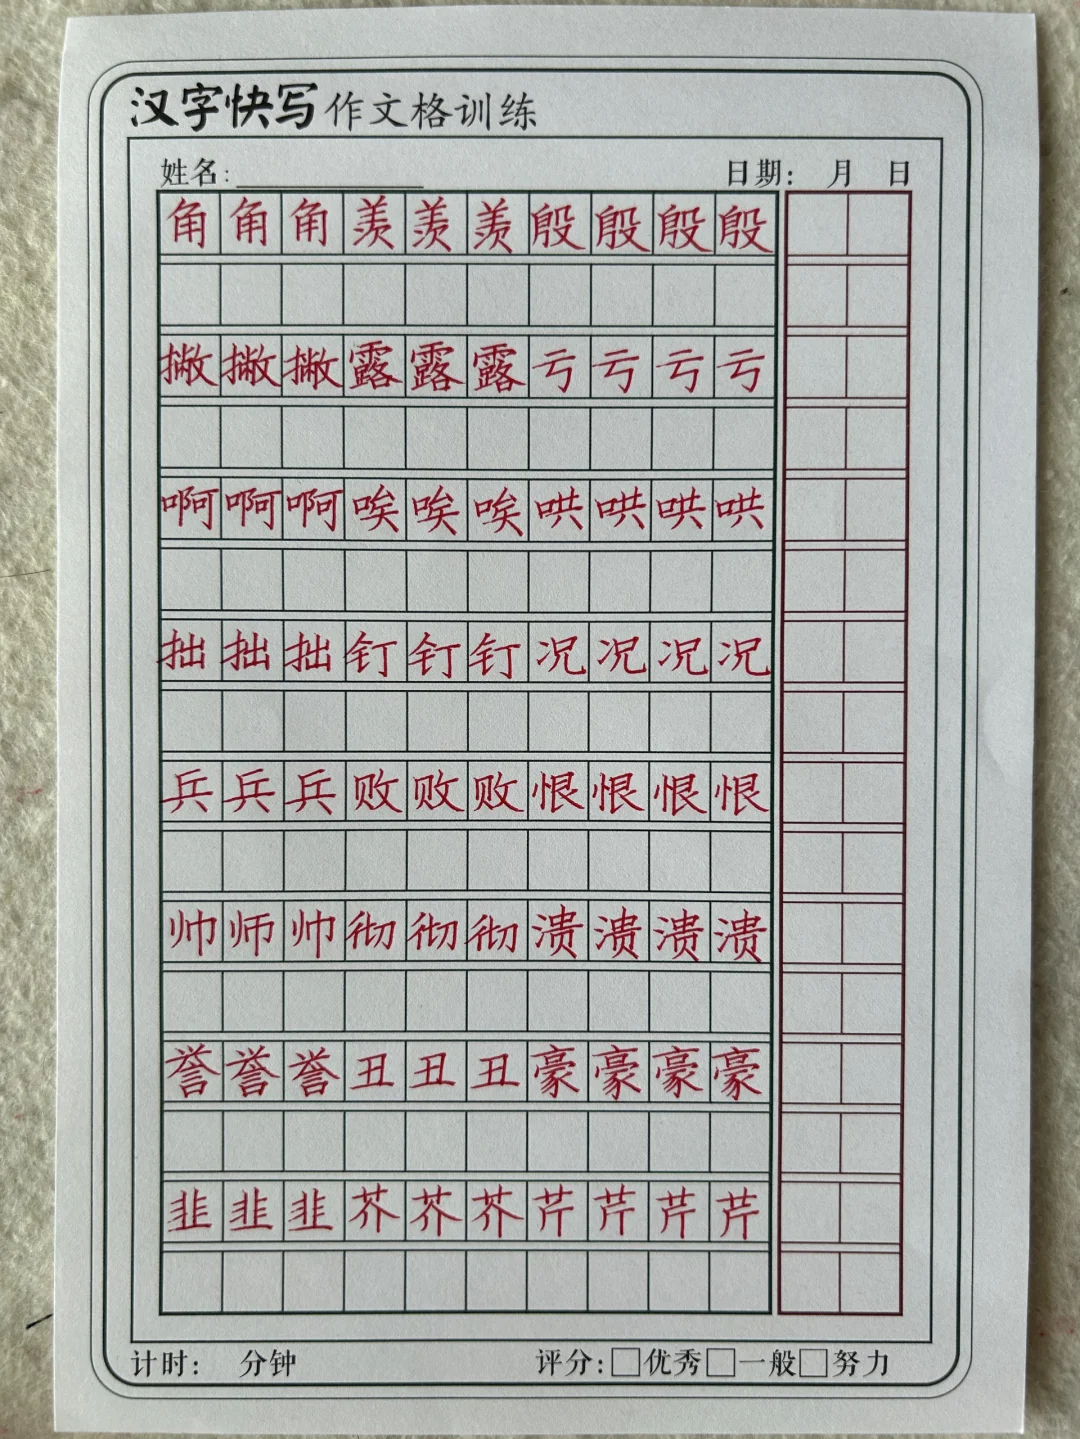 汉字快写作文格训练
姓名: 日期: 月 日
角角角羡羡羡殷殷殷殷
撇撇撇露露露亏亏亏亏
啊啊啊唉唉唉哄哄哄哄
拙拙拙钉钉钉况况况况
兵兵兵败败败恨恨恨恨
帅师帅彻彻彻溃溃溃溃
誉誉誉丑丑丑豪豪豪豪
韭韭韭芥芥芥芹芹芹芹
计时: 分钟 评分:□优秀□一般□努力